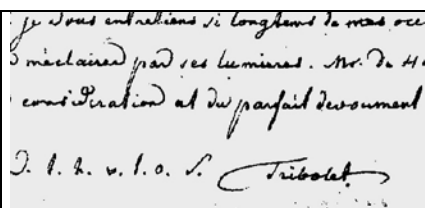 je vous entretiens si longtems de mes occ
m'éclairer par ses lumieres. Mr. de Ha
consideration et du parfait devoument
D. l. h. v. l. o. S. Tribolet